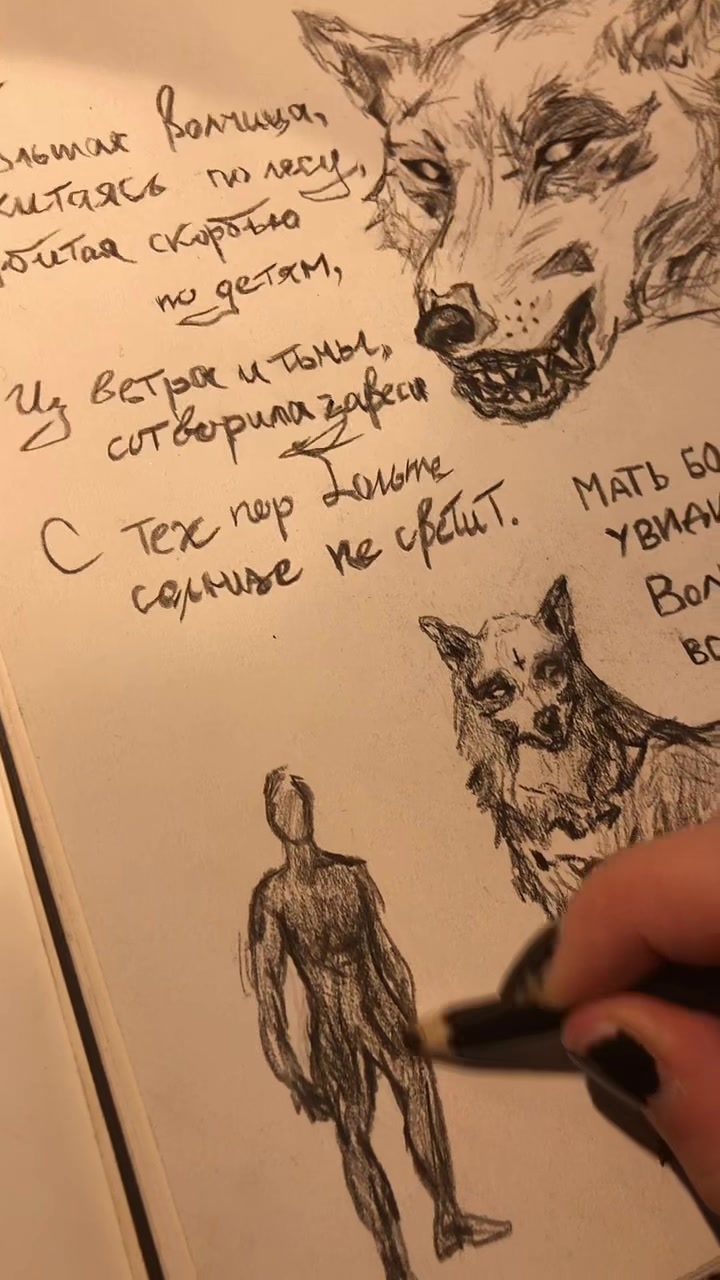 Волчица,
скитаясь по лесу,
убитая скорбью
по детям,
Из ветра и тьмы,
сотворила завесы
С тех пор больше
солнце не светит.
МАТЬ БО
УВИД
Вол